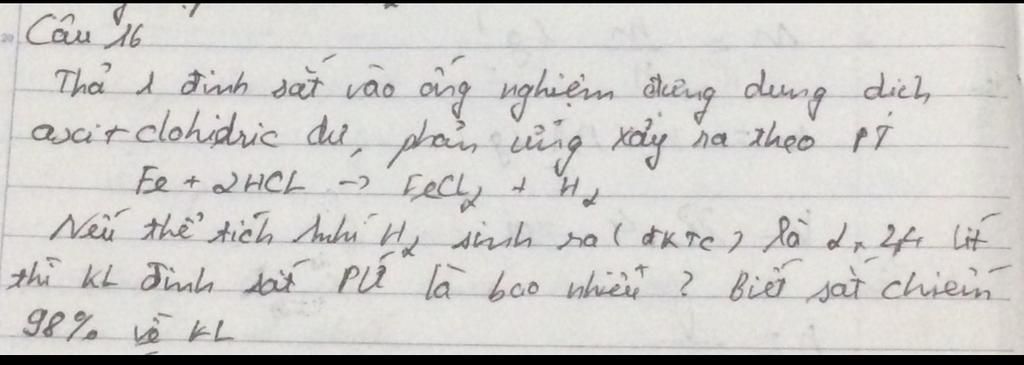 Câu 16
Thả 1 đinh sắt vào ống nghiệm đựng dung dịch
axit clohidric dư, phản ứng xảy ra theo PT
Fe + 2HCL -> FeCL2 + H2
Nếu thể tích khí H2 sinh ra (đKTC) là 2,24 lít
thì KL đinh sắt PƯ là bao nhiêu? Biết sắt chiếm
98% về KL